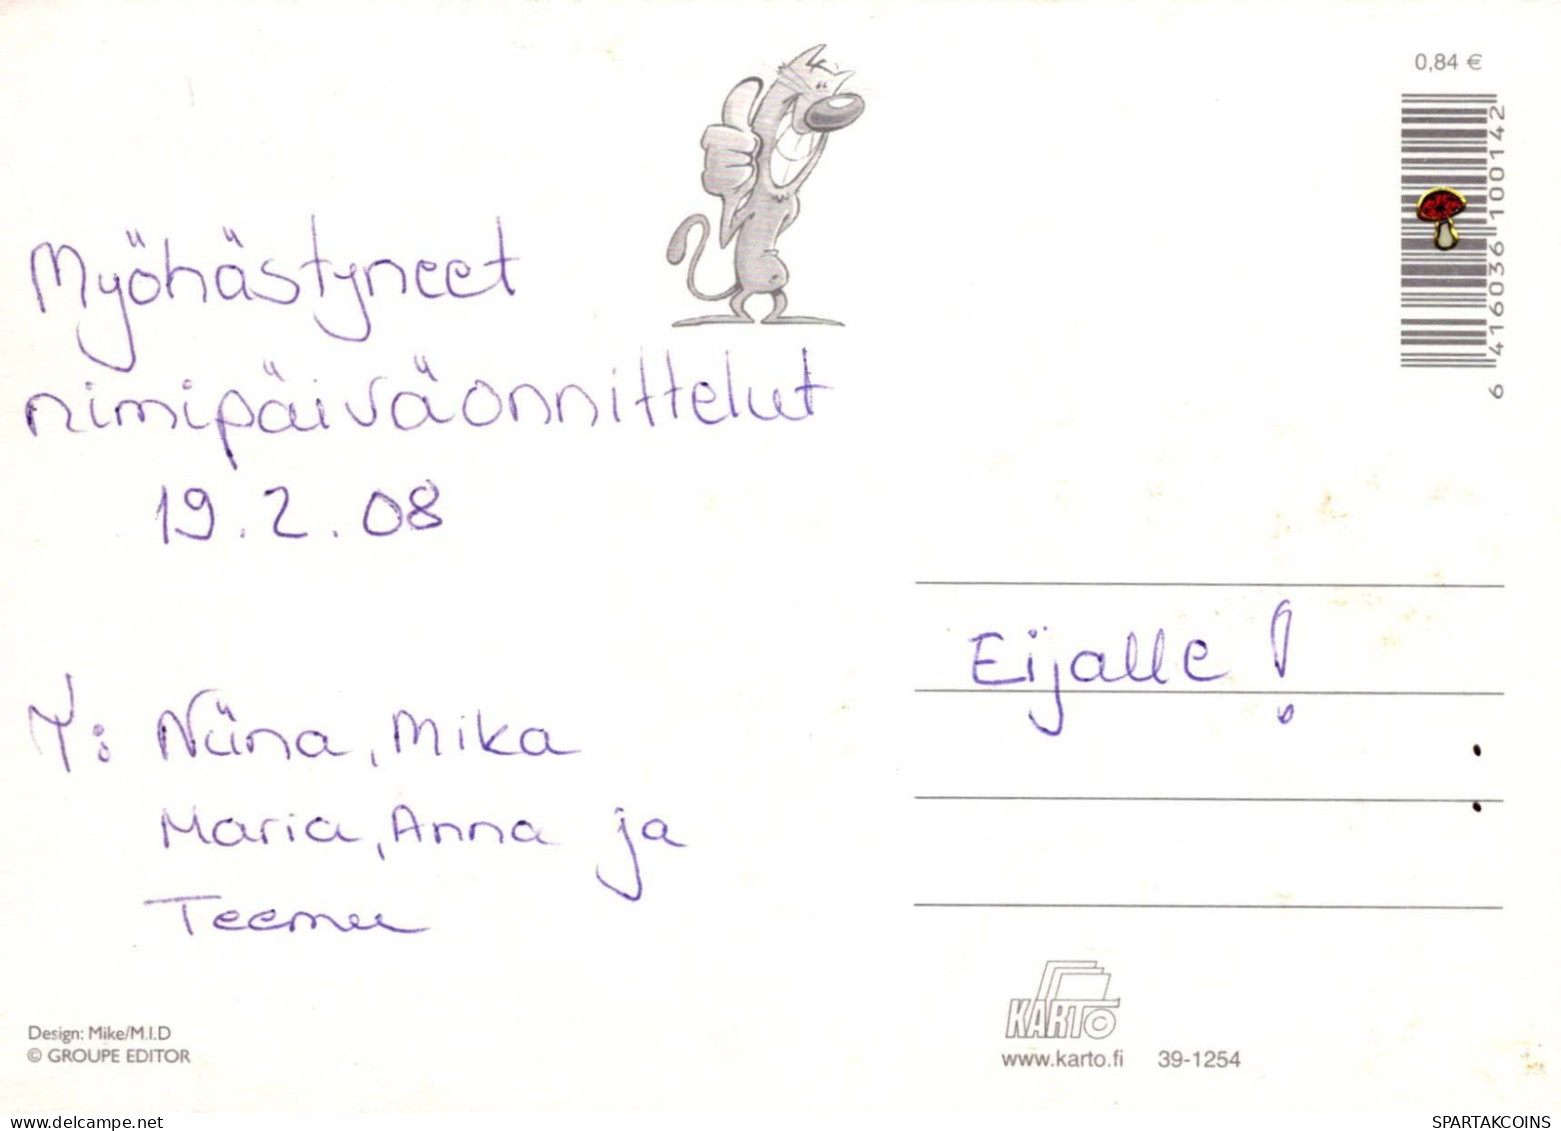 0,84 €
6 416036 100142
Myöhästyneet
nimipäiväonnittelut
19.2.08
Eijalle!
T: Niina, Mika
Maria, Anna ja
Teemu
Design: Mike/M.I.D
© GROUPE EDITOR
KARTO
www.karto.fi 39-1254
www.delcampe.net
SPARTAKCOINS